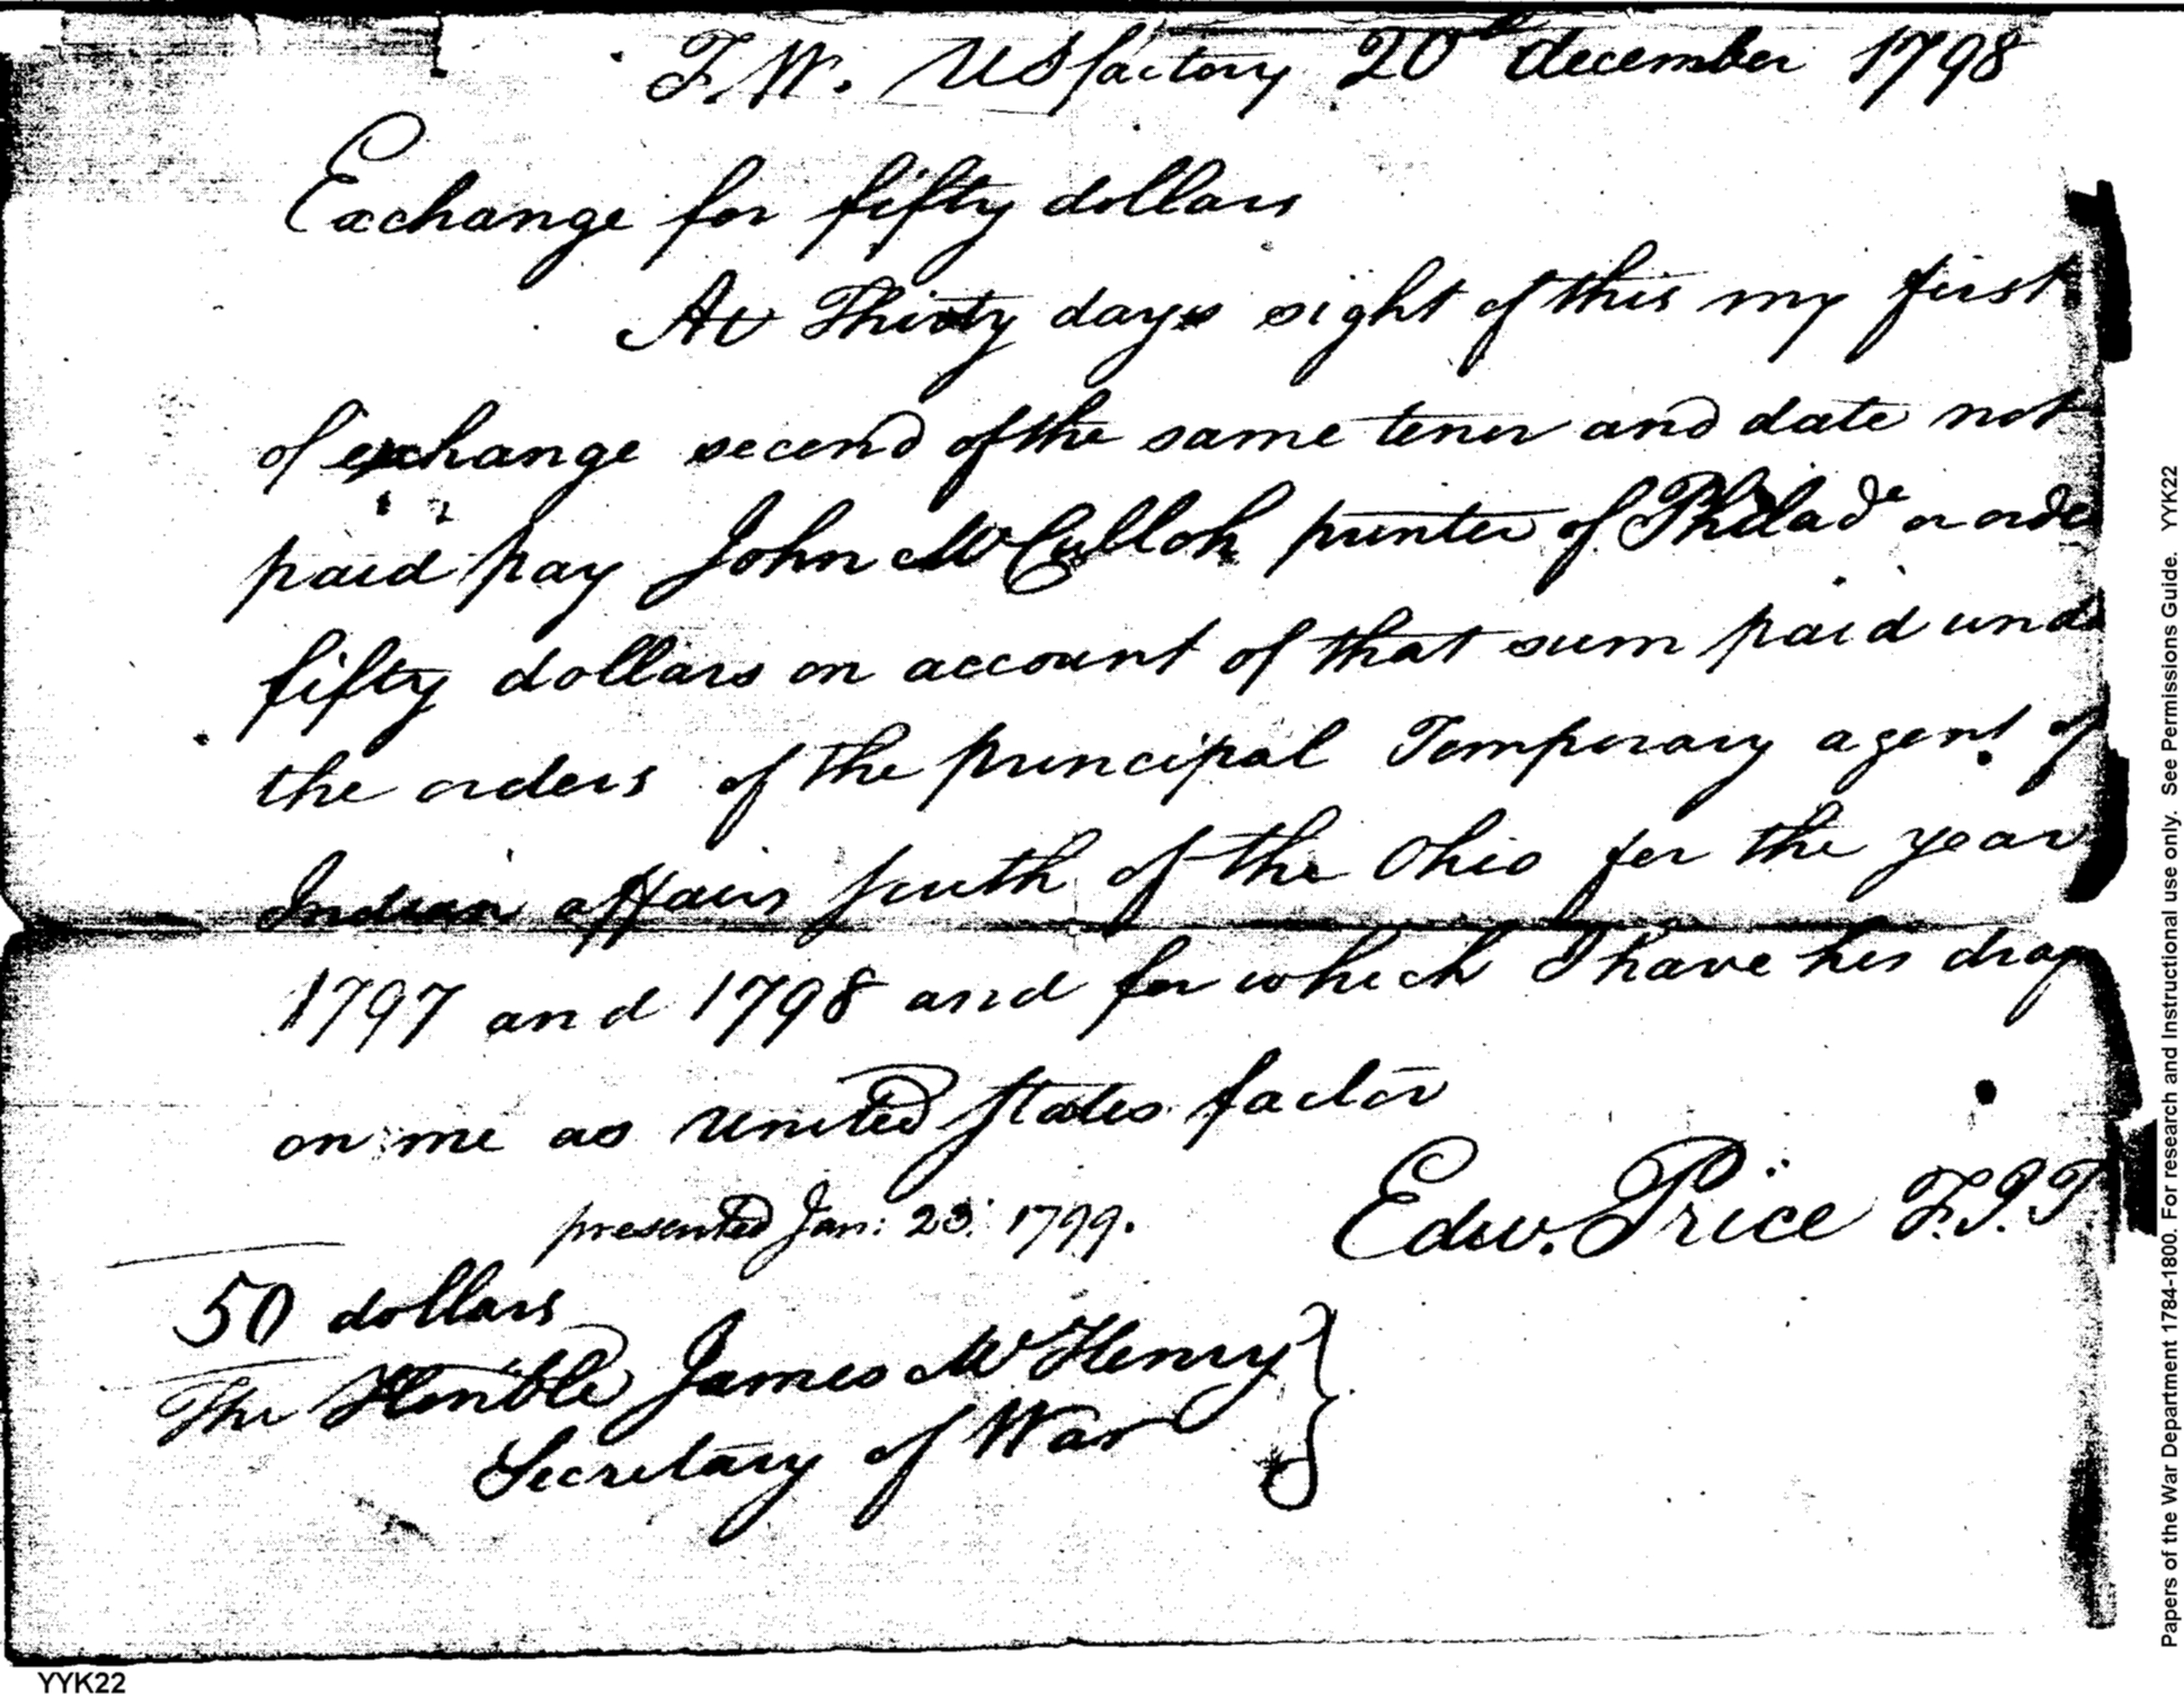 F. W. US factory 20th december 1798
Exchange for fifty dollars
At Thirty days sight of this my first
of exchange second of the same tenor and date not
paid pay John McCulloh printer of Philade or order
fifty dollars on account of that sum paid unde
the orders of the principal Temporary agent of
Indian affairs south of the Ohio for the year
1797 and 1798 and for which I have his draf
on me as United States factor
presented Jan: 23. 1799.
Edw. Price F.I.T
50 dollars
The Honble James McHenry
Secretary of War
Papers of the War Department 1784-1800. For research and Instructional use only. See Permissions Guide. YYK22
YYK22